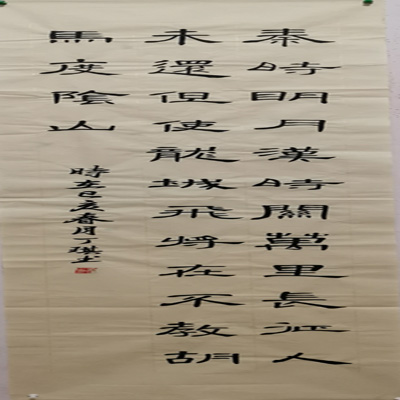 秦時明月漢時關萬里長征人
未還但使龍城飛将在不教胡
馬度陰山
時在己亥春月丁琪书